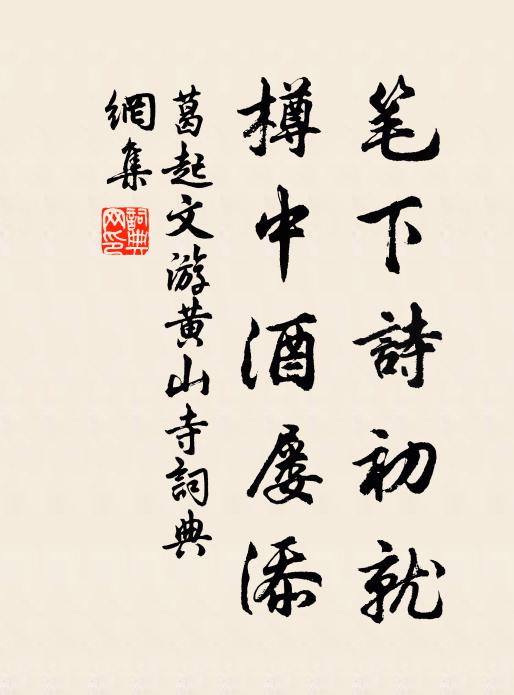 笔下詩初就
樽中酒屡添
葛起文游黄山寺詞典
網集
詞典
网印